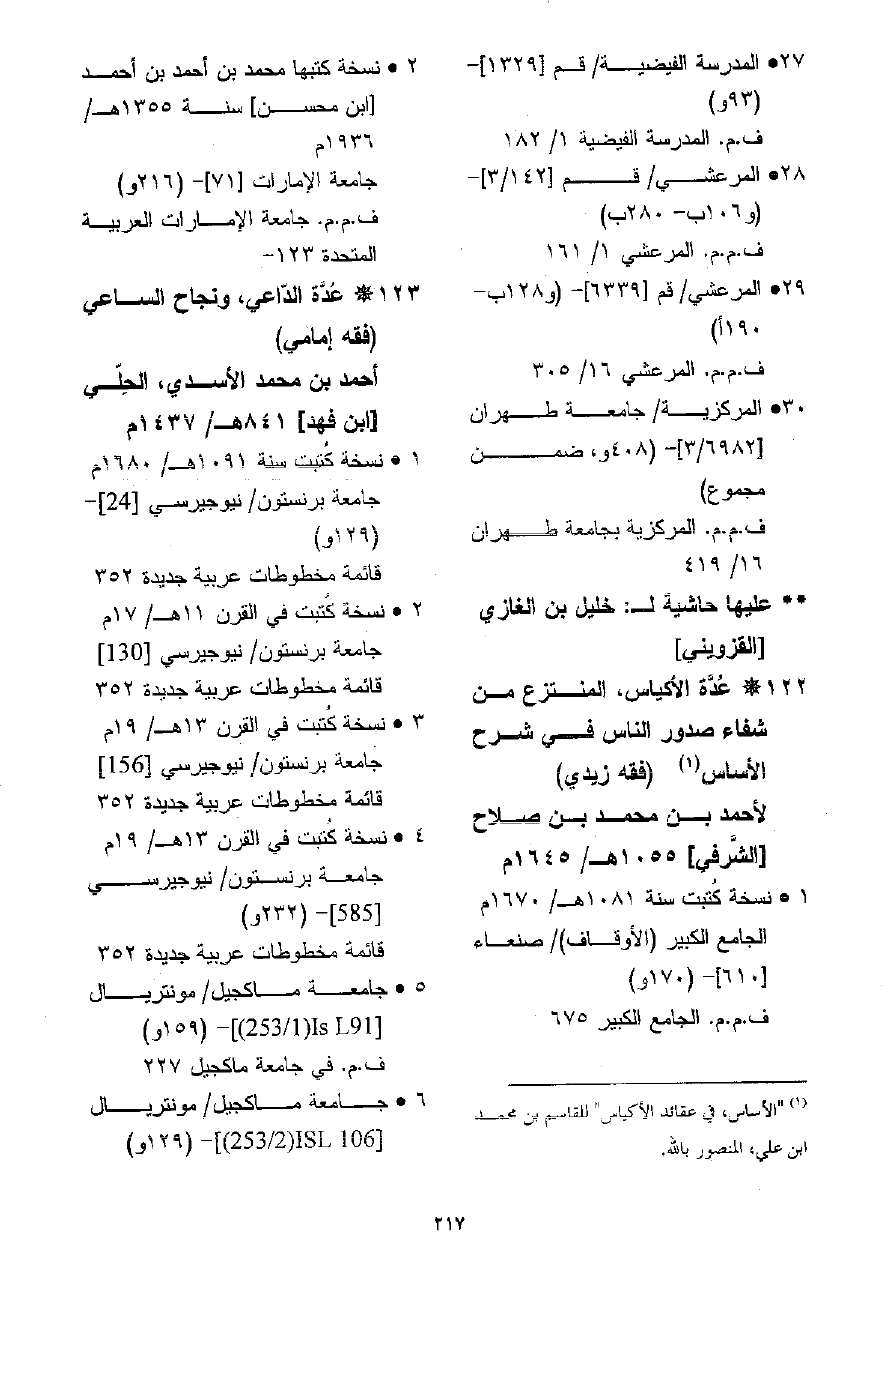 ٢٧• المدرسة الفيضيـــة/ قـم [١٣٢٩]-
(٩٣و)
ف.م. المدرسة الفيضية ١/ ١٨٢
٢٨• المرعشـــي/ قـــــم [٣/١٤٢]-
(و١٠٦ب- ٢٨٠ب)
ف.م.م. المرعشي ١/ ١٦١
٢٩• المرعشي/ قم [٦٣٣٩]- (و١٢٨ب-
١٩٠أ)
ف.م.م. المرعشي ١٦/ ٣٠٥
٣٠• المركزيـــة/ جامعـــة طـــهران
[٣/٦٩٨٢]- (٤٠٨و، ضمـــــن
مجموع)
ف.م.م. المركزية بجامعة طـــهران
١٦/ ٤١٩
** عليها حاشية لـ: خليل بن الغازي
[القزويني]
١٢٢* عُدَّة الأكياس، المنـــتزع مـن
شفاء صدور الناس فـــي شـــرح
الأساس(١) (فقه زيدي)
لأحمد بـــن محمـــد بـــن صـــلاح
[الشَّرفي] ١٠٥٥هـ/ ١٦٤٥م
١ • نسخة كُتبت سنة ١٠٨١هـ/ ١٦٧٠م
الجامع الكبير (الأوقـــاف)/ صنعـــاء
[٦١٠]- (١٧٠و)
ف.م.م. الجامع الكبير ٦٧٥
(١) "الأساس، في عقائد الأكياس" للقاسم بن محمـــد
ابن علي، المنصور بالله.
٢ • نسخة كتبها محمد بن أحمد بن أحمـــد
[ابن محســـن] سنـــة ١٣٥٥هـ/
١٩٣٦م
جامعة الإمارات [٧١]- (٢١٦و)
ف.م.م. جامعة الإمـــارات العربيـــة
المتحدة ١٢٣-
١٢٣* عُدَّة الدّاعي، ونجاح الســـاعي
(فقه إمامي)
أحمد بن محمد الأســـدي، الحلِّـــي
[ابن فهد] ٨٤١هـ/ ١٤٣٧م
١ • نسخة كُتبت سنة ١٠٩١هـ/ ١٦٨٠م
جامعة برنستون/ نيوجيرســـي [24]-
(١٢٩و)
قائمة مخطوطات عربية جديدة ٣٥٢
٢ • نسخة كُتبت في القرن ١١هـ/ ١٧م
جامعة برنستون/ نيوجيرسي [130]
قائمة مخطوطات عربية جديدة ٣٥٢
٣ • نسخة كُتبت في القرن ١٣هـ/ ١٩م
جامعة برنستون/ نيوجيرسي [156]
قائمة مخطوطات عربية جديدة ٣٥٢
٤ • نسخة كُتبت في القرن ١٣هـ/ ١٩م
جامعـــة برنســـتون/ نيوجيرســـي
[585]- (٢٣٢و)
قائمة مخطوطات عربية جديدة ٣٥٢
٥ • جامعـــة مـــاكجيل/ مونتريـــال
[(253/1)Is L91]- (١٥٩و)
ف.م. في جامعة ماكجيل ٢٢٧
٦ • جـــامعة مـــاكجيل/ مونتريـــال
[(253/2)ISL 106]- (١٢٩و)
٢١٧